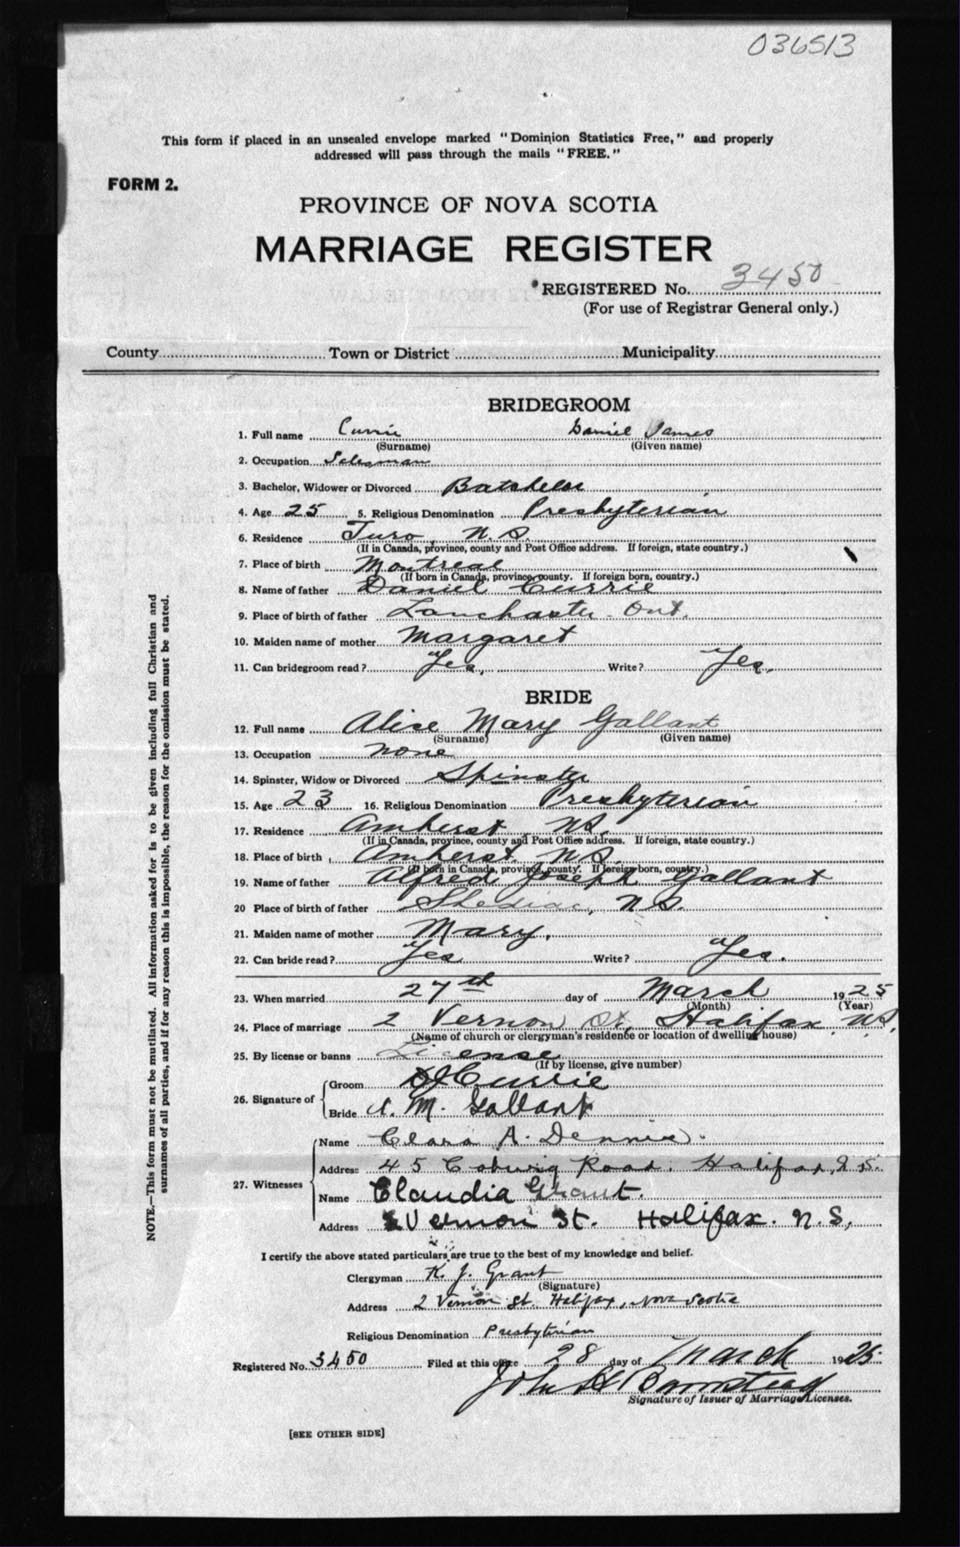 036513
This form if placed in an unsealed envelope marked "Dominion Statistics Free," and properly
addressed will pass through the mails "FREE."
FORM 2.
PROVINCE OF NOVA SCOTIA
MARRIAGE REGISTER
REGISTERED No. 3450
(For use of Registrar General only.)
County Town or District Municipality
BRIDEGROOM
1. Full name Currie Daniel James
(Surname) (Given name)
2. Occupation Salesman
3. Bachelor, Widower or Divorced Batchelor
4. Age 25 5. Religious Denomination Presbyterian
6. Residence Turo N.S.
(If in Canada, province, county and Post Office address. If foreign, state country.)
7. Place of birth Montreal
(If born in Canada, province, county. If foreign born, country.)
8. Name of father Daniel Currie
9. Place of birth of father Lanchaster Ont.
10. Maiden name of mother Margaret
11. Can bridegroom read? Yes, Write? Yes.
BRIDE
12. Full name Alice Mary Gallant
(Surname) (Given name)
13. Occupation none
14. Spinster, Widow or Divorced Spinster
15. Age 23 16. Religious Denomination Presbyterian
17. Residence Amherst, NS.
(If in Canada, province, county and Post Office address. If foreign, state country.)
18. Place of birth Amherst. NS.
(If born in Canada, province, county. If foreign born, country.)
19. Name of father Alfred Joseph Gallant
20 Place of birth of father Shediac, NS.
21. Maiden name of mother Mary.
22. Can bride read? Yes Write? Yes.
23. When married 27th day of March 1925
(Month) (Year)
24. Place of marriage 2 Vernon St, Halifax. N.S.
(Name of church or clergyman's residence or location of dwelling house)
25. By license or banns License
(If by license, give number)
26. Signature of Groom DJ Currie
Bride A. M. Gallant
27. Witnesses
Name Clara A. Dennis.
Address 45 Coburg Road. Halifax, N.S.
Name Claudia Grant.
Address 2 Vernon St. Halifax. N.S,
I certify the above stated particulars are true to the best of my knowledge and belief.
Clergyman K. J. Grant
(Signature)
Address 2 Vernon St. Halifax, Nova Scotia
Religious Denomination Presbyterian
Registered No. 3450 Filed at this office 28 day of March 1925
John H Barnstead
Signature of Issuer of Marriage Licenses.
[SEE OTHER SIDE]
NOTE.—This form must not be mutilated. All information asked for is to be given including full Christian and
surnames of all parties, and if for any reason this is impossible, the reason for the omission must be stated.